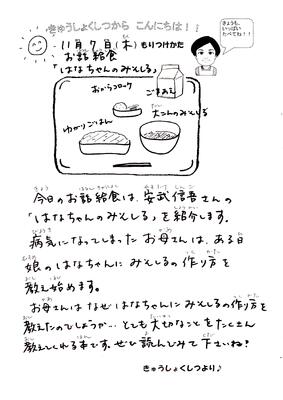 きゅうしょくしつから こんにちは!
きょうも、
いっぱい
たべてね!!
11月7日(木)もりつけかた
お話給食
「はなちゃんのみそしる」
おからコロッケ
ごまあえ
大こんのみそしる
ゆかりごはん
今日のお話給食は、安武信吾さんの
「はなちゃんのみそしる」を紹介します。
病気になってしまったお母さんは、ある日
娘のはなちゃんにみそしるの作り方を
教え始めます。
お母さんはなぜはなちゃんにみそしるの作り方を
教えたのでしょうか… とても大切なことをたくさん
教えてくれる本です。ぜひ読んでみて下さいね?
きゅうしょくしつより♪